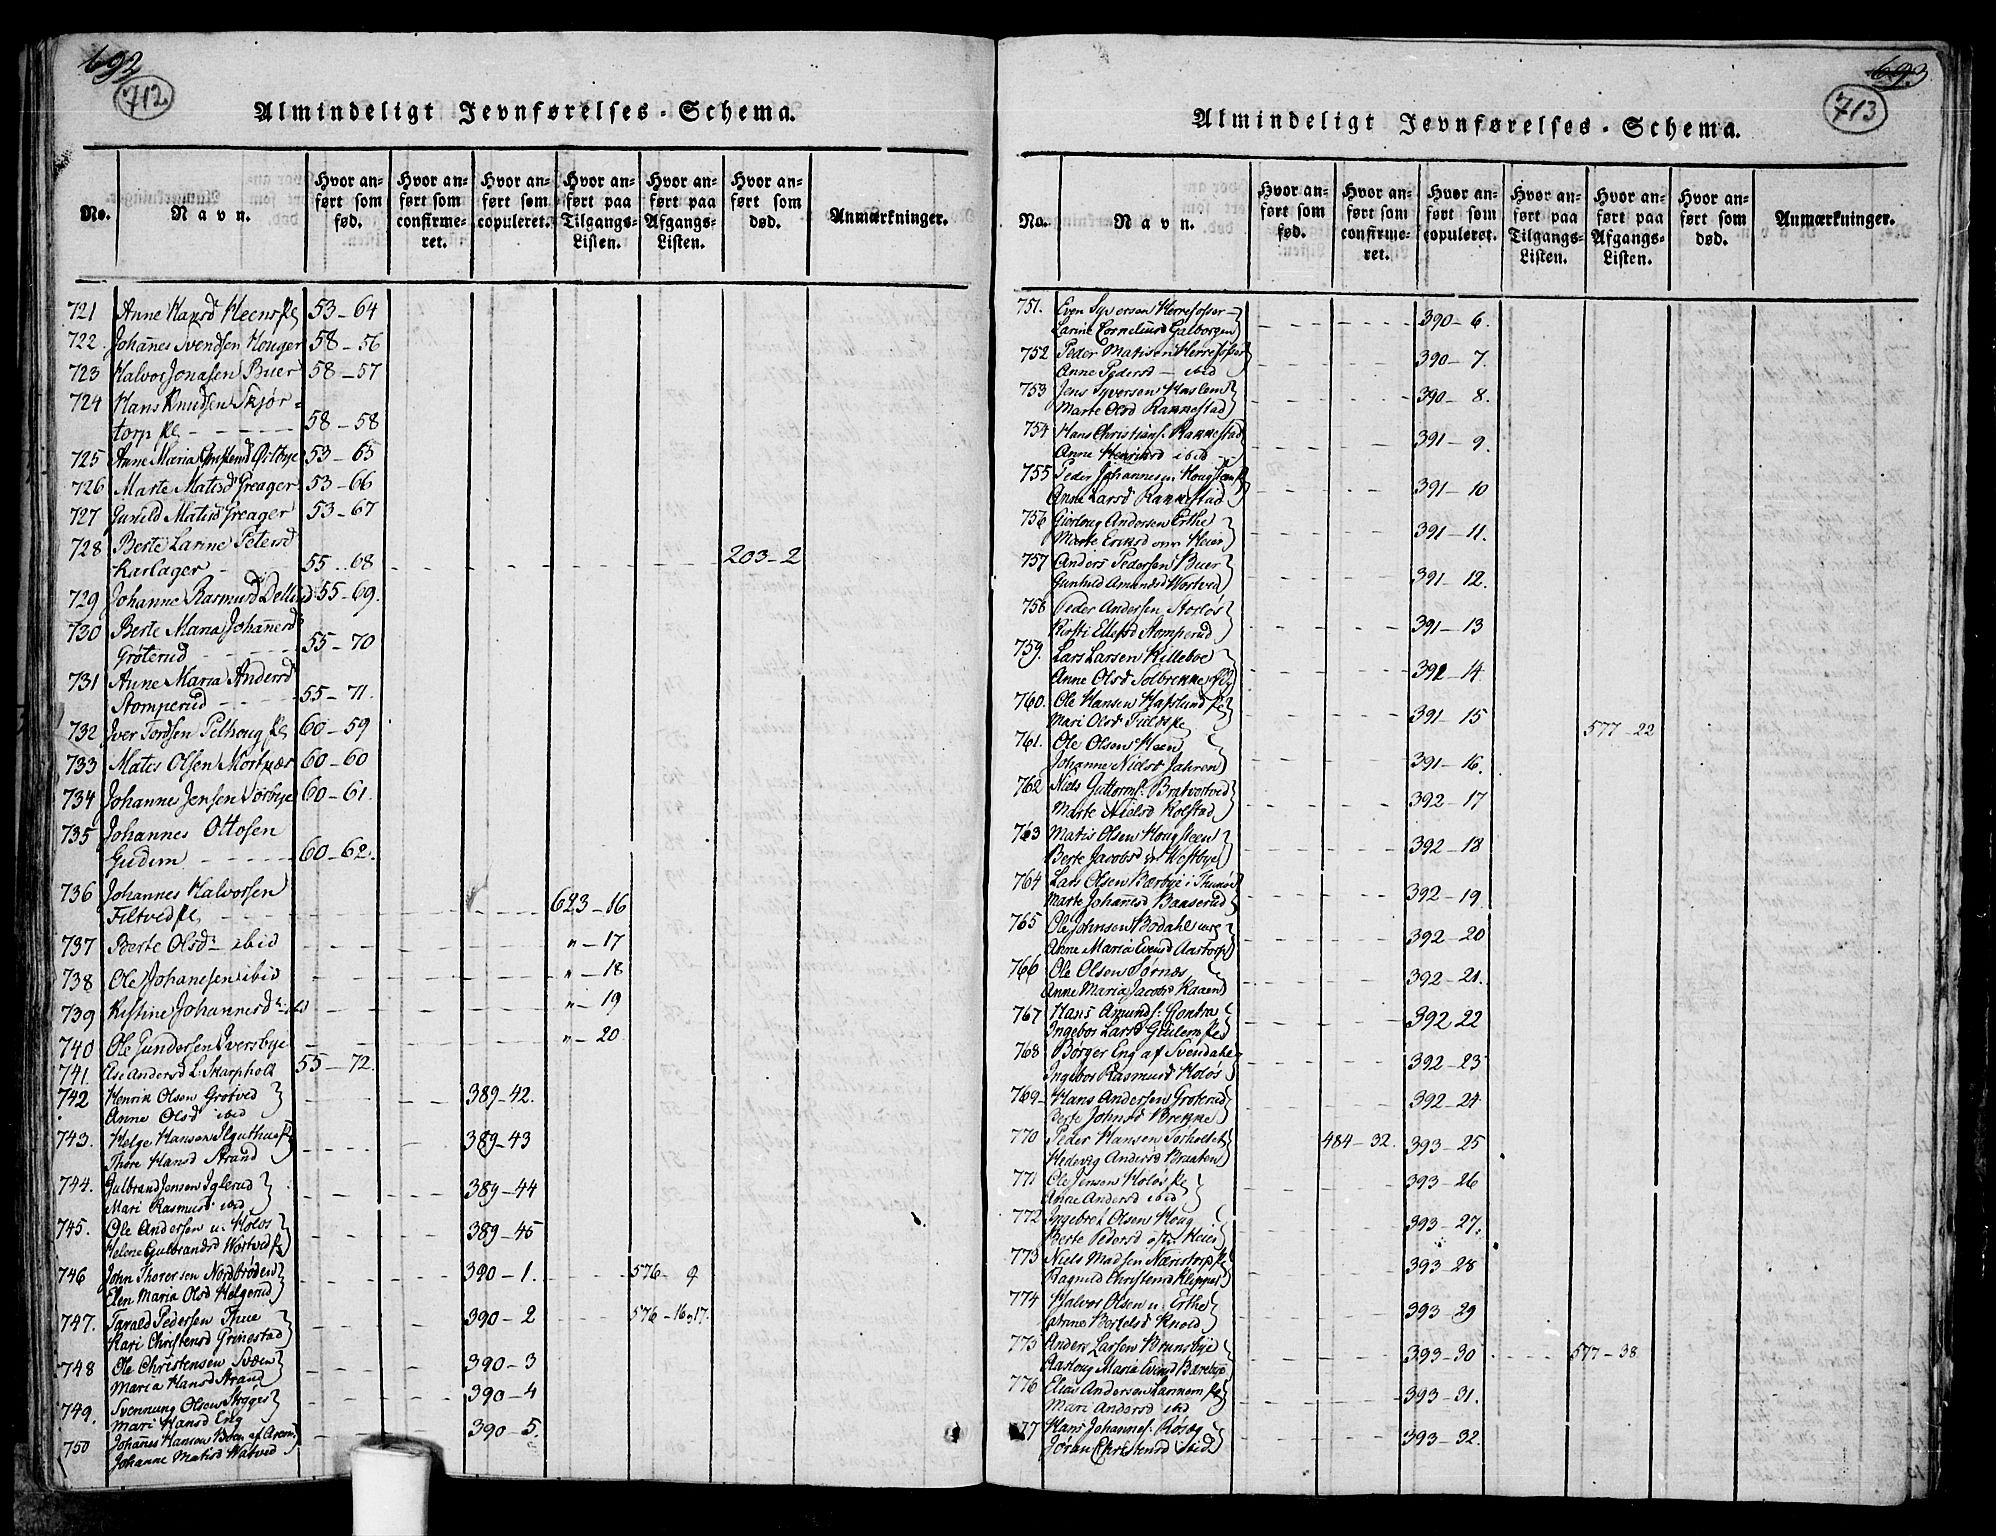 692
712
Almindeligt Jevnførelses-Schema.
No.
Navn.
Hvor anført som fød.
Hvor anført som confirmeret.
Hvor anført som copuleret.
Hvor anført paa Tilgangs-Listen.
Hvor anført paa Afgangs-Listen.
Hvor anført som død.
Anmærkninger.
721 Anne Hansd 53-64
722. Johanes Svendsen Houger 58-56
723 Halvor Jonasen Buer 58-57
724 Hans Knudsen Skjør-
torp 58-58
725 Anne Maria 53-65
726 Marte Matisd Greager 53-66
727 Gunild Matisd Greager 53-67
728 Berte Larine Petersd
Karlager 55..68 203-2
729 Johanne Rasmusd 55-69.
730 Berte Maria Johanesd
Grøterud 55-70
731 Anne Maria Andersd
Stomperud 55-71.
732 Iver Tordsen Pelhoug 60-59
733 Mates Olsen 60-60
734 Johannes Jensen Sørbye 60-61.
735 Johannes Ottosen
Gudim 60-62.
736 Johannes Halvorsen
Filtved 623-16
737 Berte Olsd ibid " - 17
738 Ole Johanesen ibid " - 18
739 Kistine Johannesd " - 19
740 Ole Gundersen Iversbye " - 20
741. Else Andersd L. Skarpholt 55-72.
742 Henrik Olsen Grøtved
Anne Olsd ibid 389-42.
743. Helge Hansen
Thore Hansd Strand 389-43
744. Gulbrand Jensen Iglerud
Mari Rasmusd ibid 389-44
745. Ole Andersen u. Holøs
Helene Gulbrandsd Wortved 389-45
746 John Thoresen Nordbrøden
Elen Maria Olsd Helgerud 390-1. 576-9
747. Tarald Pedersen Thue
Kari Christensd Grinestad 390-2 576-16,17.
748 Ole Christensen Svæen
Maria Hansd Strand 390-3
749. Svennung Olsen
Mari Hansd Eng 390-4
750 Johanes Hansen
Johanne Matisd Watved 390-5.
693
713
Almindeligt Jevnførelses-Schema.
No.
Navn.
Hvor anført som fød.
Hvor anført som confirmeret.
Hvor anført som copuleret.
Hvor anført paa Tilgangs-Listen.
Hvor anført paa Afgangs-Listen.
Hvor anført som død.
Anmærkninger.
751. Even Syversen Herrefosser
Larine Corneliusd Galborgen 390-6.
752 Peder Matisen Herrefosser
Anne Pedersd - ibid 390-7.
753 Jens Syversen Haslem
Marte Olsd Rakkestad 390-8.
754 Hans Christians: Rakkestad
Anne Henriksd ibid 391-9.
755 Peder Johannesen
Anne Larsd Rakkestad 391-10
756 Gierloug Andersen Erthe
Marte Eriksd 391-11.
757 Anders Pedersen Buer
Gunhild Amundsd Wortved 391-12.
758 Peder Andersen Storløs
Kirsti Ellefsd Stomperud 391-13
759. Lars Larsen Killeboe
Anne Olsd Solbrekke 392-14
760. Ole Hansen Haslund
Mari Olsd 391-15 577-22
761. Ole Olsen Heen
Johanne Nielsd Jahren 391-16.
762 Niels Guttorms: Bratvortved
Marte Nielsd Kolstad 392-17
763 Matis Olsen Hougsteen
Berte Jacobsd Westbye 392-18
764 Lars Olsen Bærbye i Thunøe
Marte Johanesd Banserud 392-19.
765 Ole Johnsen Bodahl
Anne Maria Evensd Aastorp 392-20
766 Ole Olsen Sørnæs
Anne Maria Jacobsd 392-21.
767 Hans Amunds:
Ingebor Larsd 392 22
768 Børger Eng af Svendahl
Ingebor Rasmusd Holøs 392-23
769 Hans Andersen Grøterud
Berte Johnsd Brekke 392-24
770 Peder Hansen Torholtet
Hedevig Andersd Braaten 484-32. 393-25
771 Ole Jensen Holøs
Anne Andersd ibid 393-26
772 Ingebret Olsen Houg
Berte Pedersd 393-27.
773 Niels Madsen
Ragnild Christensd Klipper 393-28
774 Halvor Olsen u. Erthe
Anne Bertelsd Knold 393-29
775 Anders Larsen Brunsbye
Aasloug Maria Evensd Bærebye 393-30 577-38
776 Elias Andersen
Mari Andersd ibid 393-31.
777 Hans Johannes: Røsæg
Jøran Christensd ibid 393-32.